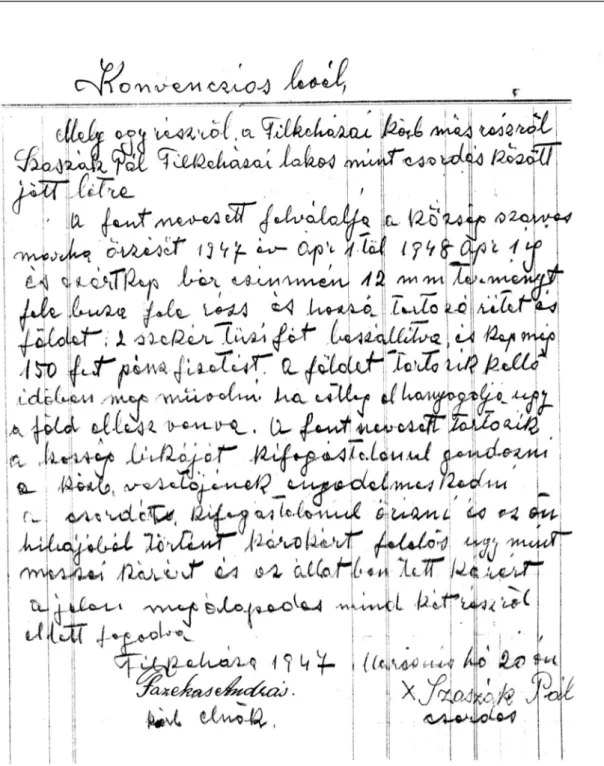 Konvencziós levél,
Mely egy részről, a Filkeházai Körb más részről
Szaszák Pál Filkeházai lakos mint csordás között
jött létre
A fent nevesett felválalja a község szarvas
marha őrzését 1947 év Apr 1től 1948 Apr 1 ig
és ezért kap bér csinmén 12 mm terményt
fele buza fele rozs és hozzá tartozó rétet és
földet, 2 szekér tüzifát beszállítva, és kap még
150 fort pénz fizetést. a földet tartozik kellő
időben meg müvelni ha estleg el hanyagolja ugy
a föld ellesz vonva. A fent nevesett tartozik
a község bikáját kifogástalanul gondozni
a közb, vezetőjének engedelmes kedni
a csordát, kifogástalanul őrizni és az ön
hibájából történt károkért felelős ugy mint
mezei kárért és az állat ban tett kárért
a jelen megálapodas mind két részről
el lett fogadva
Filkeháza 1947 Március hó 20 án
Fazekas András. X Szaszák Pál
körb elnök. csordás